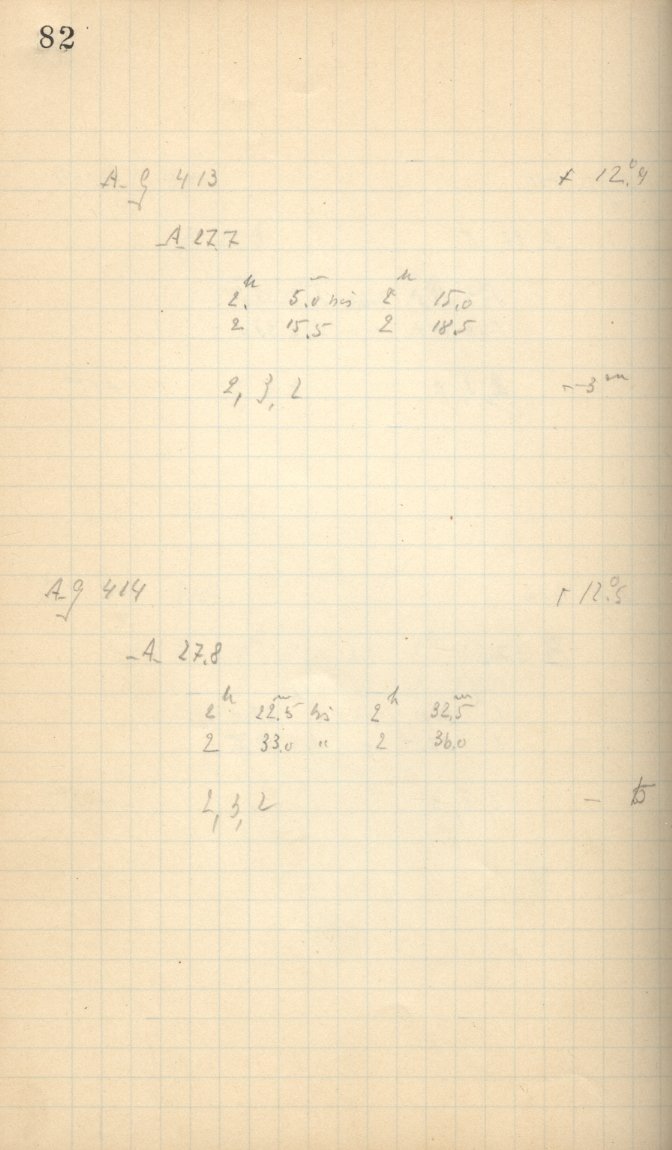 82
A g 413 + 12.°4
A 27.7
2.h 5.0m bis 2h 15.0
2 15.5 2 18.5
2, 3, 2 -3m
A g 414 + 12.°5
A 27.8
2h 22.5m bis 2h 32.5m
2 33.0 " 2 36.0
2, 3, 2 -